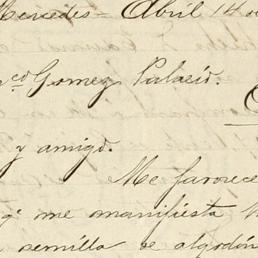 Mercedes = Abril 14 d
co Gomez Palacio.
y amigo.
Me favorece
qe me manifiesta
semilla de algodón